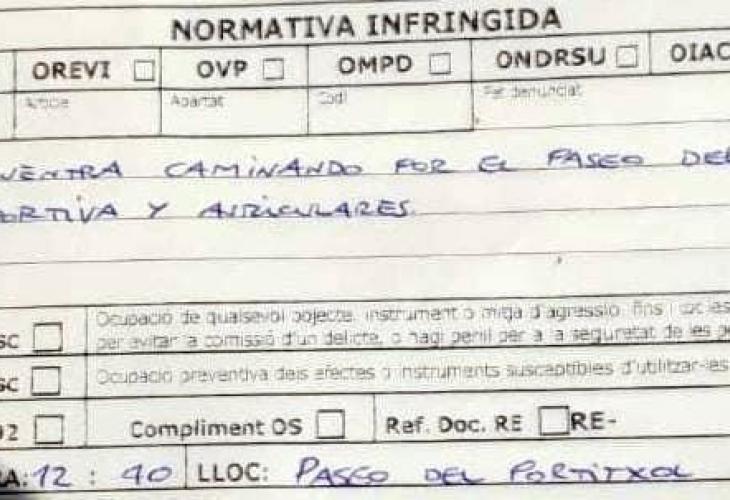 NORMATIVA INFRINGIDA
OREVI OVP OMPD ONDRSU OIAC
Article Apartat Codi Fet denunciat
UENTRA CAMINANDO POR EL PASEO DEL
ORTIVA Y AURICULARES.
SC Ocupació de qualsevol objecte, instrument o mitjà d'agressió, fins i tot les
per evitar la comissió d'un delicte, o hagi perill per a la seguretat de les pe
SC Ocupació preventiva dels efectes o instruments susceptibles d'utilitzar-les
92 Compliment OS Ref. Doc. RE RE-
RA: 12 : 40 LLOC: PASEO DEL PORTITXOL